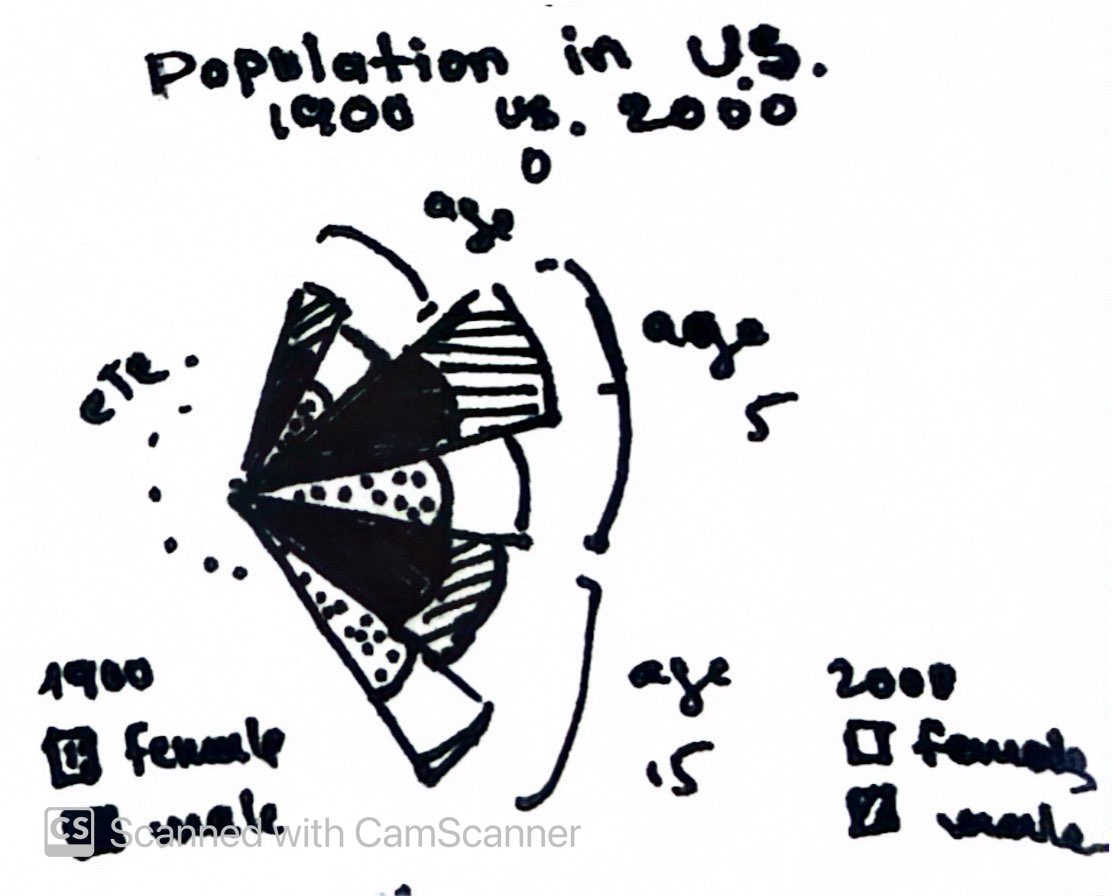 Population in U.S.
1900 vs. 2000
0
age
age
5
etc.
age
15
1900
female
male
2000
female
male
CS Scanned with CamScanner